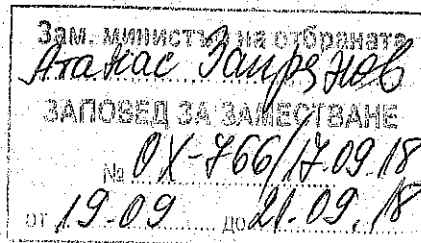 Зам. министър на отбраната
Атанас Запрянов
ЗАПОВЕД ЗА ЗАМЕСТВАНЕ
№ ОХ-766/17.09.18
от 19.09 до 21.09.18